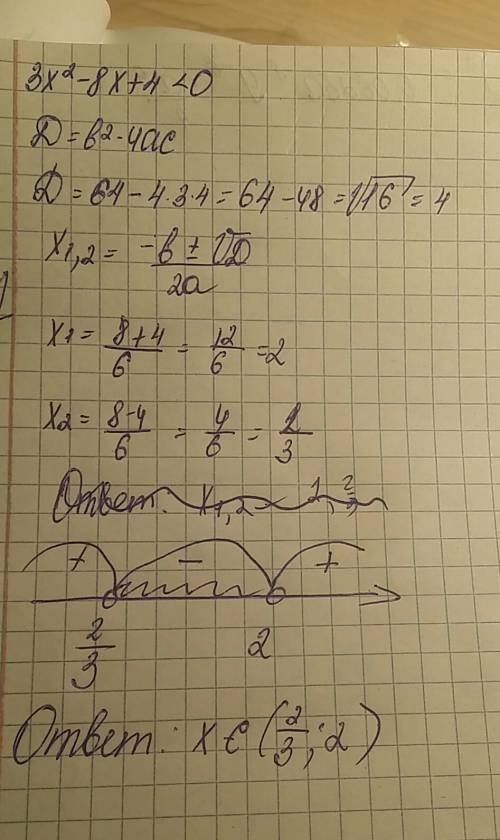 3x² - 8x + 4 < 0
D = b² - 4ac
D = 64 - 4·3·4 = 64 - 48 = √16 = 4
x1,2 = (-b ± √D)/2a
x1 = (8+4)/6 = 12/6 = 2
x2 = (8-4)/6 = 4/6 = 2/3
Ответ: x1,2 =
+ - +
2/3 2
Ответ: x ∈ (2/3; 2)